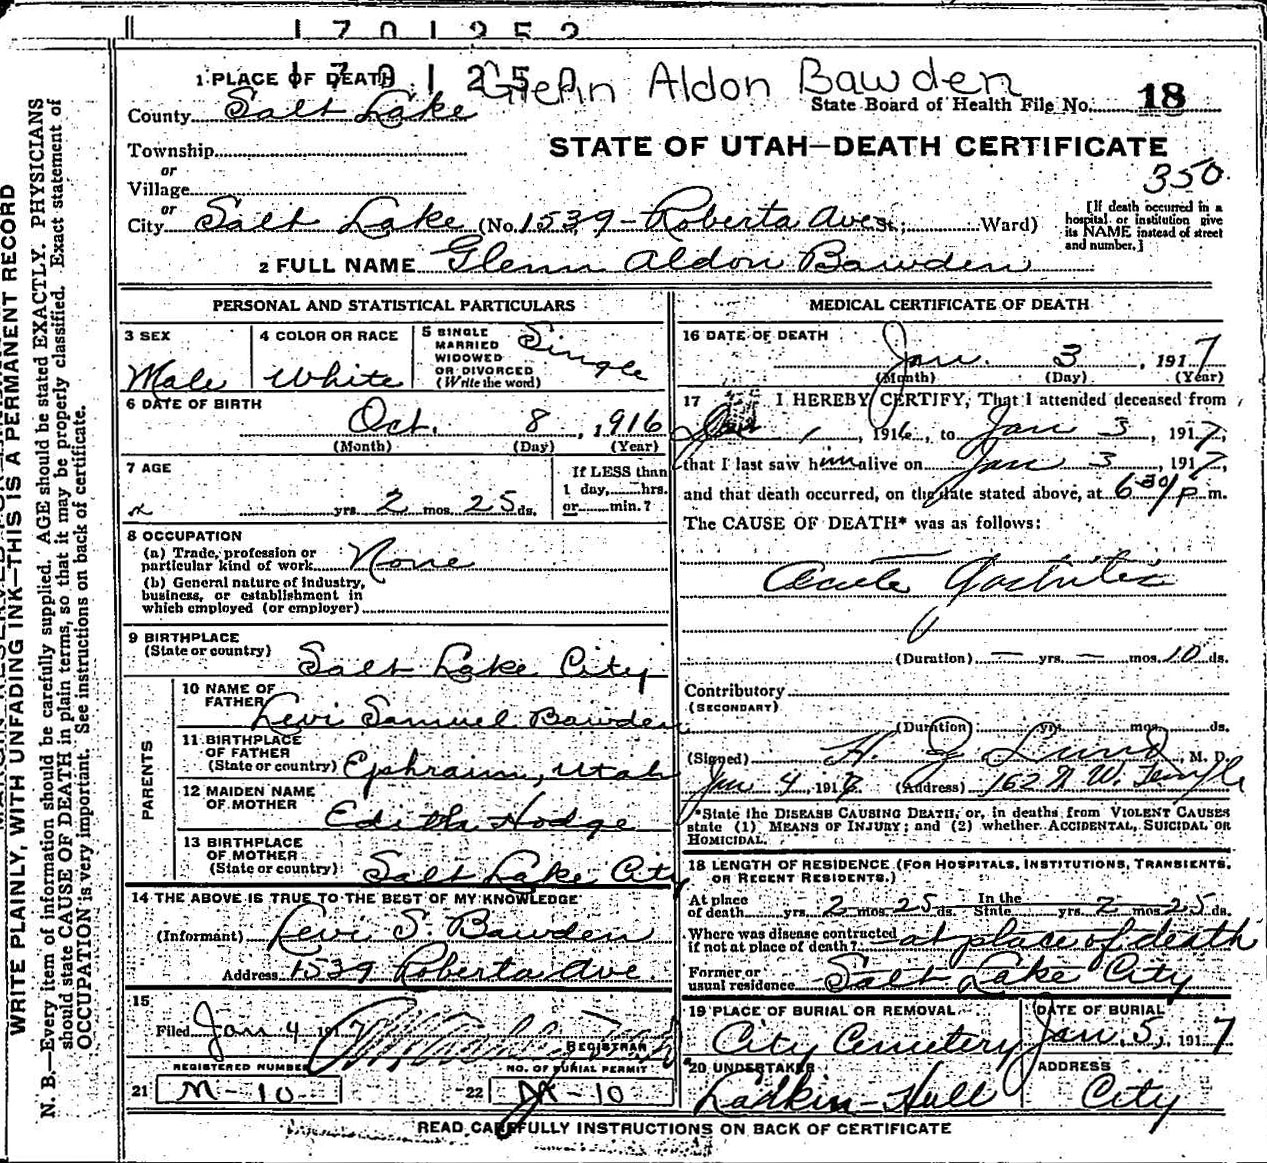 1701252
170125
Glenn Aldon Bawden
1 PLACE OF DEATH
County Salt Lake
State Board of Health File No. 18
Township
STATE OF UTAH—DEATH CERTIFICATE
or
Village
350
or
City Salt Lake (No. 1539 - Roberta Ave St.; Ward)
[If death occurred in a hospital or institution give its NAME instead of street and number.]
2 FULL NAME Glenn Aldon Bawden
PERSONAL AND STATISTICAL PARTICULARS
3 SEX
Male
4 COLOR OR RACE
White
5 SINGLE
MARRIED
WIDOWED
OR DIVORCED
(Write the word)
Single
6 DATE OF BIRTH
Oct. 8, 1916
(Month) (Day) (Year)
7 AGE
yrs. 2 mos. 25 ds.
If LESS than
1 day, hrs.
or min.?
8 OCCUPATION
(a) Trade, profession or
particular kind of work None
(b) General nature of industry,
business, or establishment in
which employed (or employer)
9 BIRTHPLACE
(State or country) Salt Lake City
PARENTS
10 NAME OF
FATHER Levi Samuel Bawden
11 BIRTHPLACE
OF FATHER
(State or country) Ephraim, Utah
12 MAIDEN NAME
OF MOTHER Edith Hodge
13 BIRTHPLACE
OF MOTHER
(State or country) Salt Lake City
14 THE ABOVE IS TRUE TO THE BEST OF MY KNOWLEDGE
(Informant) Levi S. Bawden
Address 1539 Roberta Ave.
15
Filed Jan 4 1917
REGISTRAR
REGISTERED NUMBER
NO. OF BURIAL PERMIT
21 M-10
22 M-10
MEDICAL CERTIFICATE OF DEATH
16 DATE OF DEATH
Jan. 3, 1917
(Month) (Day) (Year)
17 I HEREBY CERTIFY, That I attended deceased from
1, 1916, to Jan 3, 1917,
that I last saw him alive on Jan 3, 1917,
and that death occurred, on the date stated above, at 6 30/P. m.
The CAUSE OF DEATH* was as follows:
Acute Gastritis
(Duration) — yrs. — mos. 10 ds.
Contributory
(SECONDARY)
(Duration) yrs. mos. ds.
(Signed) H. J. Lund, M. D.
Jan 4, 1917 (Address) 162 N. W. Temple
*State the DISEASE CAUSING DEATH, or, in deaths from VIOLENT CAUSES
state (1) MEANS OF INJURY; and (2) whether ACCIDENTAL, SUICIDAL OR
HOMICIDAL.
18 LENGTH OF RESIDENCE (FOR HOSPITALS, INSTITUTIONS, TRANSIENTS,
OR RECENT RESIDENTS.)
At place
of death yrs. 2 mos. 25 ds. In the
State yrs. 2 mos. 25 ds.
Where was disease contracted
if not at place of death? at place of death
Former or
usual residence Salt Lake City
19 PLACE OF BURIAL OR REMOVAL
City Cemetery
DATE OF BURIAL
Jan, 5, 1917
20 UNDERTAKER
Larkin-Hull
ADDRESS
City
READ CAREFULLY INSTRUCTIONS ON BACK OF CERTIFICATE
WRITE PLAINLY, WITH UNFADING INK—THIS IS A PERMANENT RECORD
N. B.—Every item of information should be carefully supplied. AGE should be stated EXACTLY. PHYSICIANS
should state CAUSE OF DEATH in plain terms, so that it may be properly classified. Exact statement of
OCCUPATION is very important. See instructions on back of certificate.